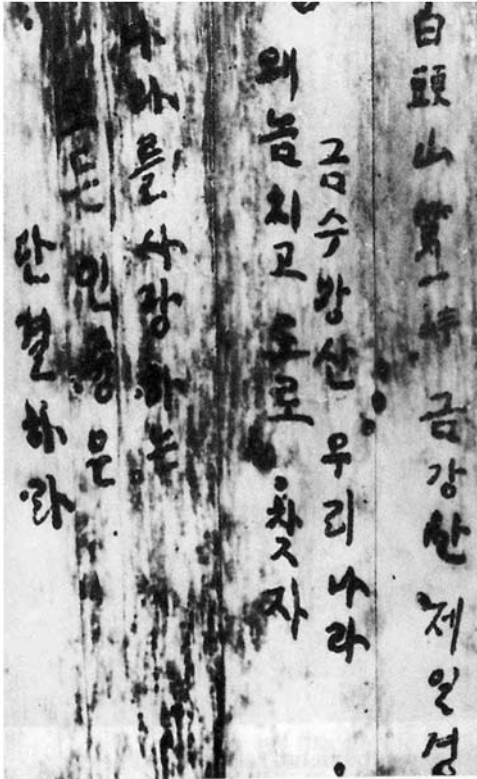 白頭山第一峰 금강산 제일경
금수강산 우리 나라
왜놈치고 도로 찾자
나라를 사랑하는
모든
단결하라